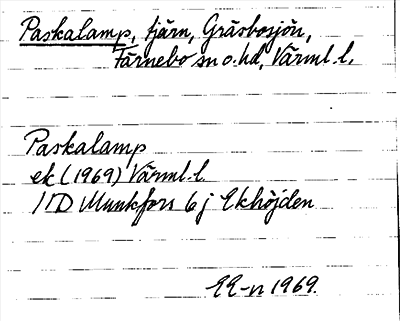 Paskalamp, tjärn, Gräsbosjön,
Färnebo sn o. hd, Värml. l.
Paskalamp
ek (1969) Värml. l.
11D Munkfors 6 j Ekhöjden
1969.